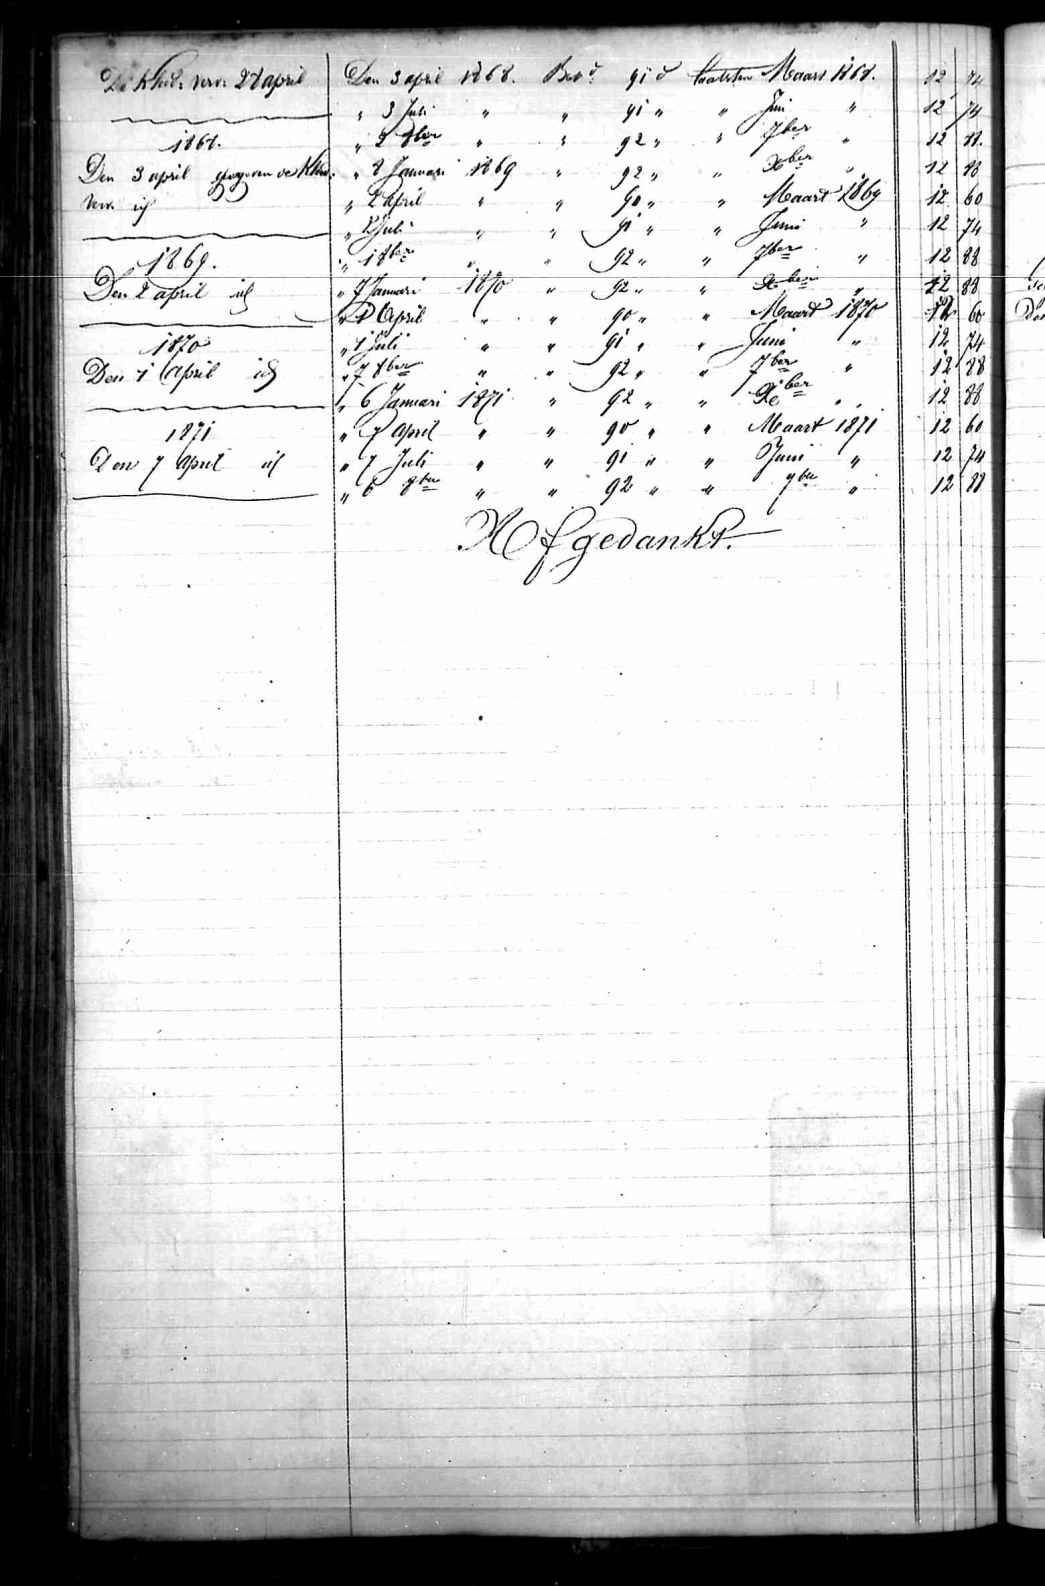 De Kled. verv. 28 april
1868.
Den 3 april gegeven de Kled.
verv. id
1869.
Den 2 april id
1870
Den 1 April id
1871
Den 7 April id
Den 3 april 1868. Bet.d 91 d laatsten Maart 1868. 12 74
" 3 Juli " " 91 " " Juni " 12 74
" 2 8ber " " 92 " " 7ber " 12 88.
" 2 Januari 1869 " 92 " " Xber " 12 88
" 2 April " " 90 " " Maart 1869 12 60
" 2 Juli " " 91 " " Junij " 12 74
" 1 8ber " " 92 " " 7ber " 12 88
" 7 Januari 1870 " 92 " " Xber " 12 88
" 1 April " " 90 " " Maart 1870 12 60
" 1 Juli " " 91 " " Juni " 12 74
" 7 8ber " " 92 " " 7ber " 12 88
" 6 Januari 1871 " 92 " " Xber " 12 88
" 7 April " " 90 " " Maart 1871 12 60
" 7 Juli " " 91 " " Juni " 12 74
" 6 8ber " " 92 " " 7ber " 12 88
Afgedankt.